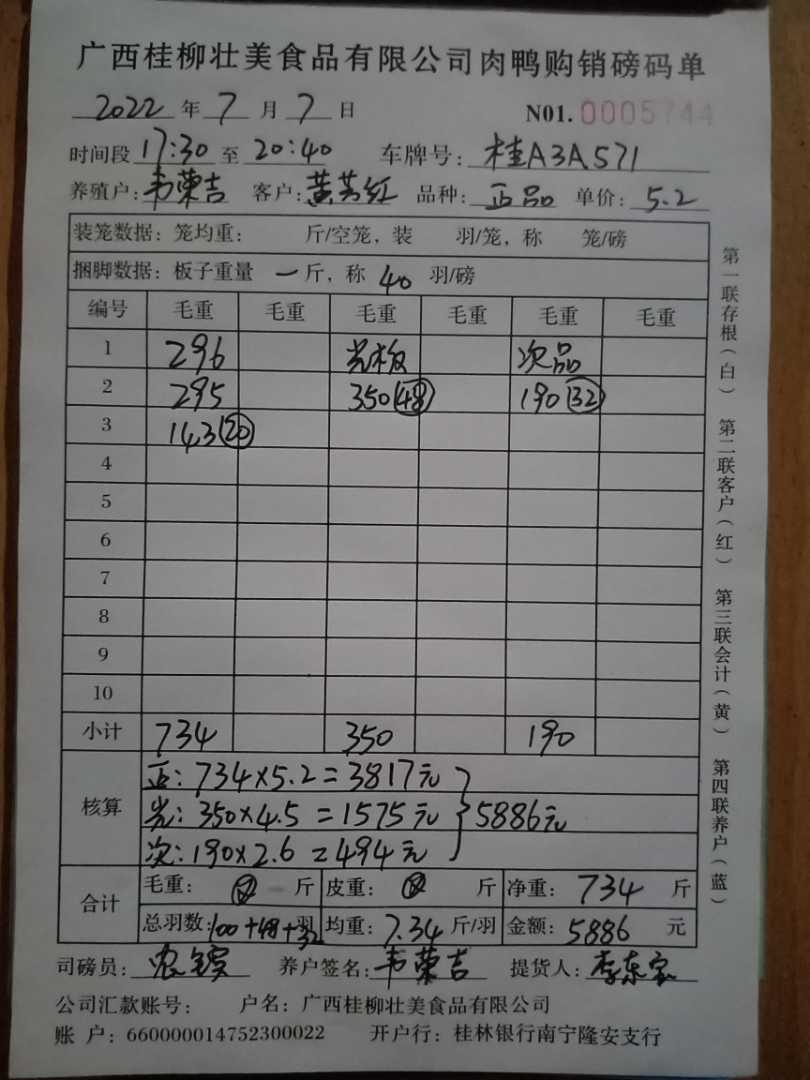 广西桂柳壮美食品有限公司肉鸭购销磅码单
2022 年 7 月 7 日 N01. 0005744
时间段 17:30 至 20:40 车牌号: 桂A3A571
养殖户: 韦荣吉 客户: 黄芳红 品种: 正品 单价: 5.2
装笼数据: 笼均重: 斤/空笼, 装 羽/笼, 称 笼/磅
捆脚数据: 板子重量 一 斤, 称 40 羽/磅
编号 毛重 毛重 毛重 毛重 毛重 毛重
1 296 光板 次品
2 295 350(48) 190(32)
3 143(20)
4
5
6
7
8
9
10
小计 734 350 190
核算
正: 734×5.2=3817元
光: 350×4.5=1575元 } 5886元
次: 190×2.6=494元
合计
毛重: 斤 皮重: 斤 净重: 734 斤
总羽数: 100+48+32 羽 均重: 7.34 斤/羽 金额: 5886 元
司磅员: 养户签名: 韦荣吉 提货人:
公司汇款账号: 户名: 广西桂柳壮美食品有限公司
账 户: 660000014752300022 开户行: 桂林银行南宁隆安支行
第一联存根(白) 第二联客户(红) 第三联会计(黄) 第四联养户(蓝)